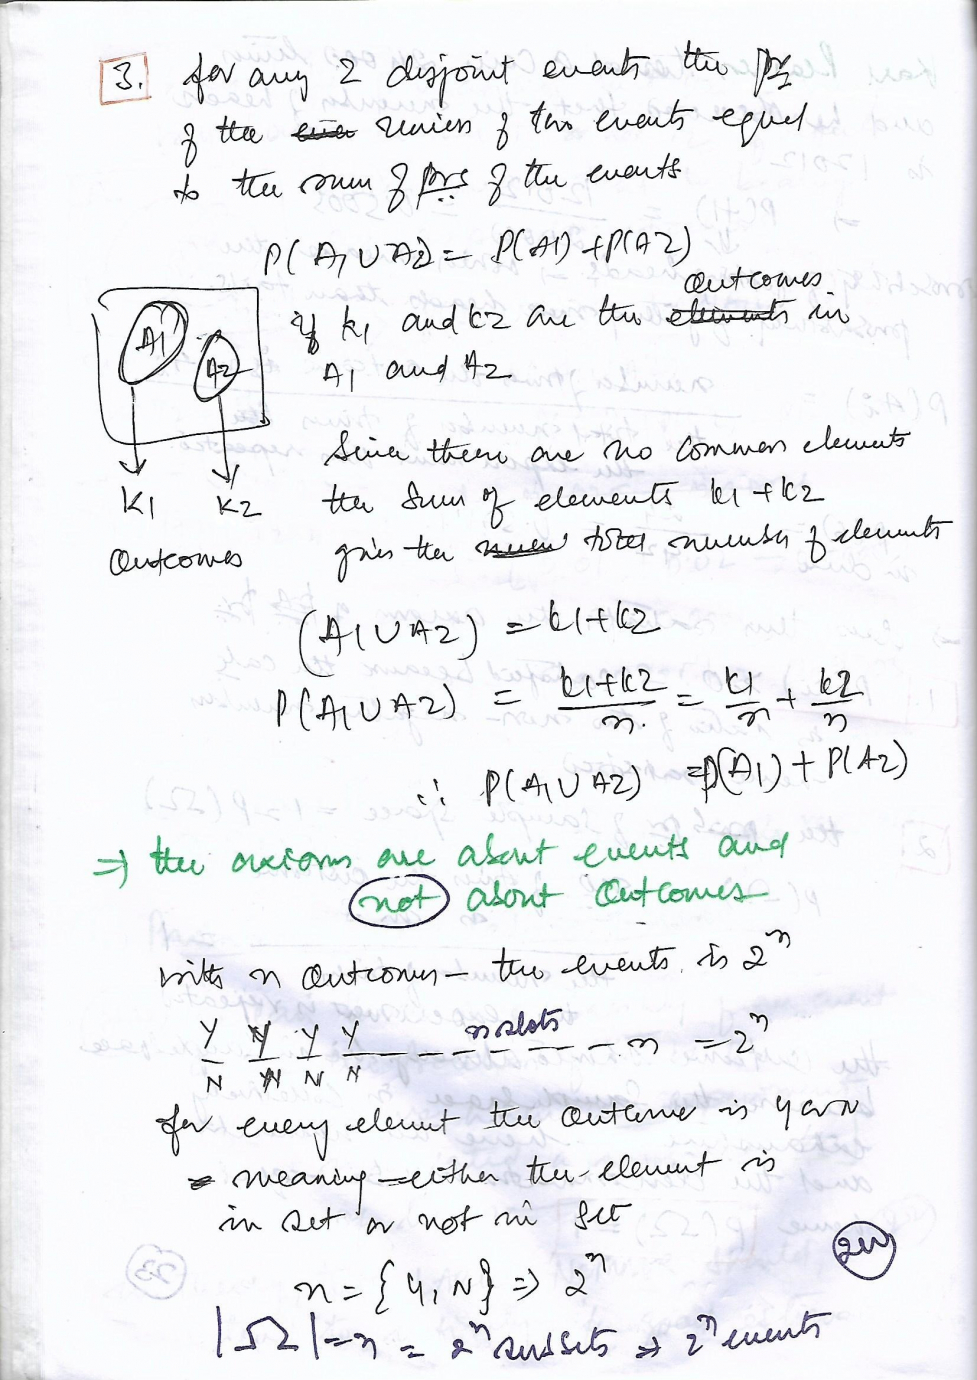 3. for any 2 disjoint events the pr
of the unions of two events equal
to the sum of prs of the events
P(A1 ∪ A2) = P(A1) + P(A2)
outcomes
if k1 and k2 are the elements in
A1 and A2
A1
A2
Since there are no common elements
K1 K2 the sum of elements k1 + k2
Outcomes gives the total number of elements
(A1 ∪ A2) = k1+k2
P(A1 ∪ A2) = k1+k2/n. = k1/n + k2/n
∴ P(A1 ∪ A2) = P(A1) + P(A2)
⇒ the axioms are about events and
not about outcomes
with n outcomes – the events is 2^n
Y Y Y Y n slots
– – – – – – – – – n = 2^n
N N N N
for every element the outcome is Y or N
meaning – either the element is
in set or not in set
n = {Y, N} ⇒ 2^n
|Ω| = n = 2^n subsets ⇒ 2^n events